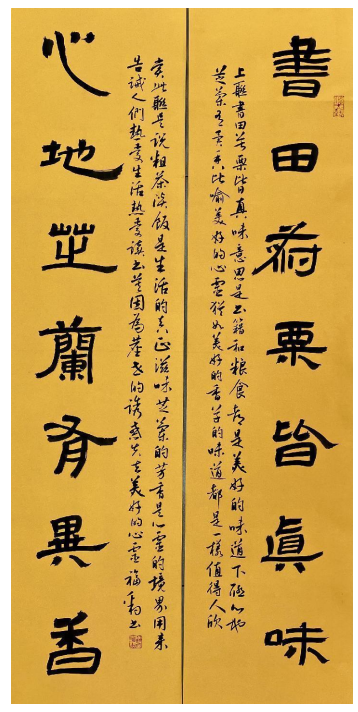 書田菽粟皆眞味
上聯書田菽粟皆真味意思是书籍和粮食都是美好的味道下聯心地
芝蘭有異香比喻美好的心靈猶如美好的香草的味道都是一樣值得人欣
赏此聯是说粗茶淡飯是生活的真正滋味芝蘭的芳香是心靈的境界用来
告誡人們熱愛生活熱愛读书莫因為塵世的誘惑失去美好的心靈福書
心地芝蘭有異香